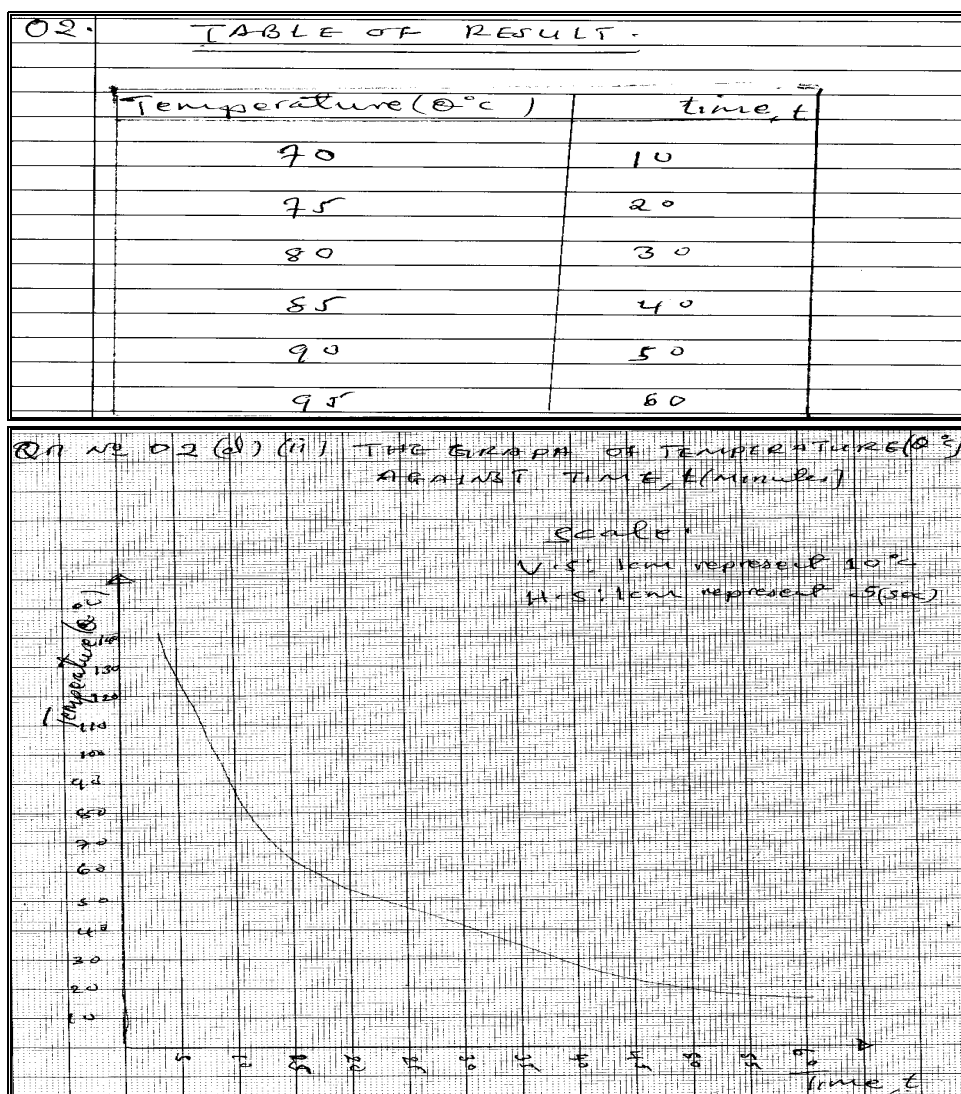 02. TABLE OF RESULT.
Temperature (θ°c) time, t
70 10
75 20
80 30
85 40
90 50
95 60
Qn No 02 (d) (ii) THE GRAPH OF TEMPERATURE (θ°c)
AGAINST TIME, t (minutes)
scale:
V.S: 1cm represent 10°c
H.S: 1cm represent 5(sec)
Temperature (θ°c)
140
130
120
110
100
90
80
70
60
50
40
30
20
10
5 10 15 20 25 30 35 40 45 50 55 60
Time, t